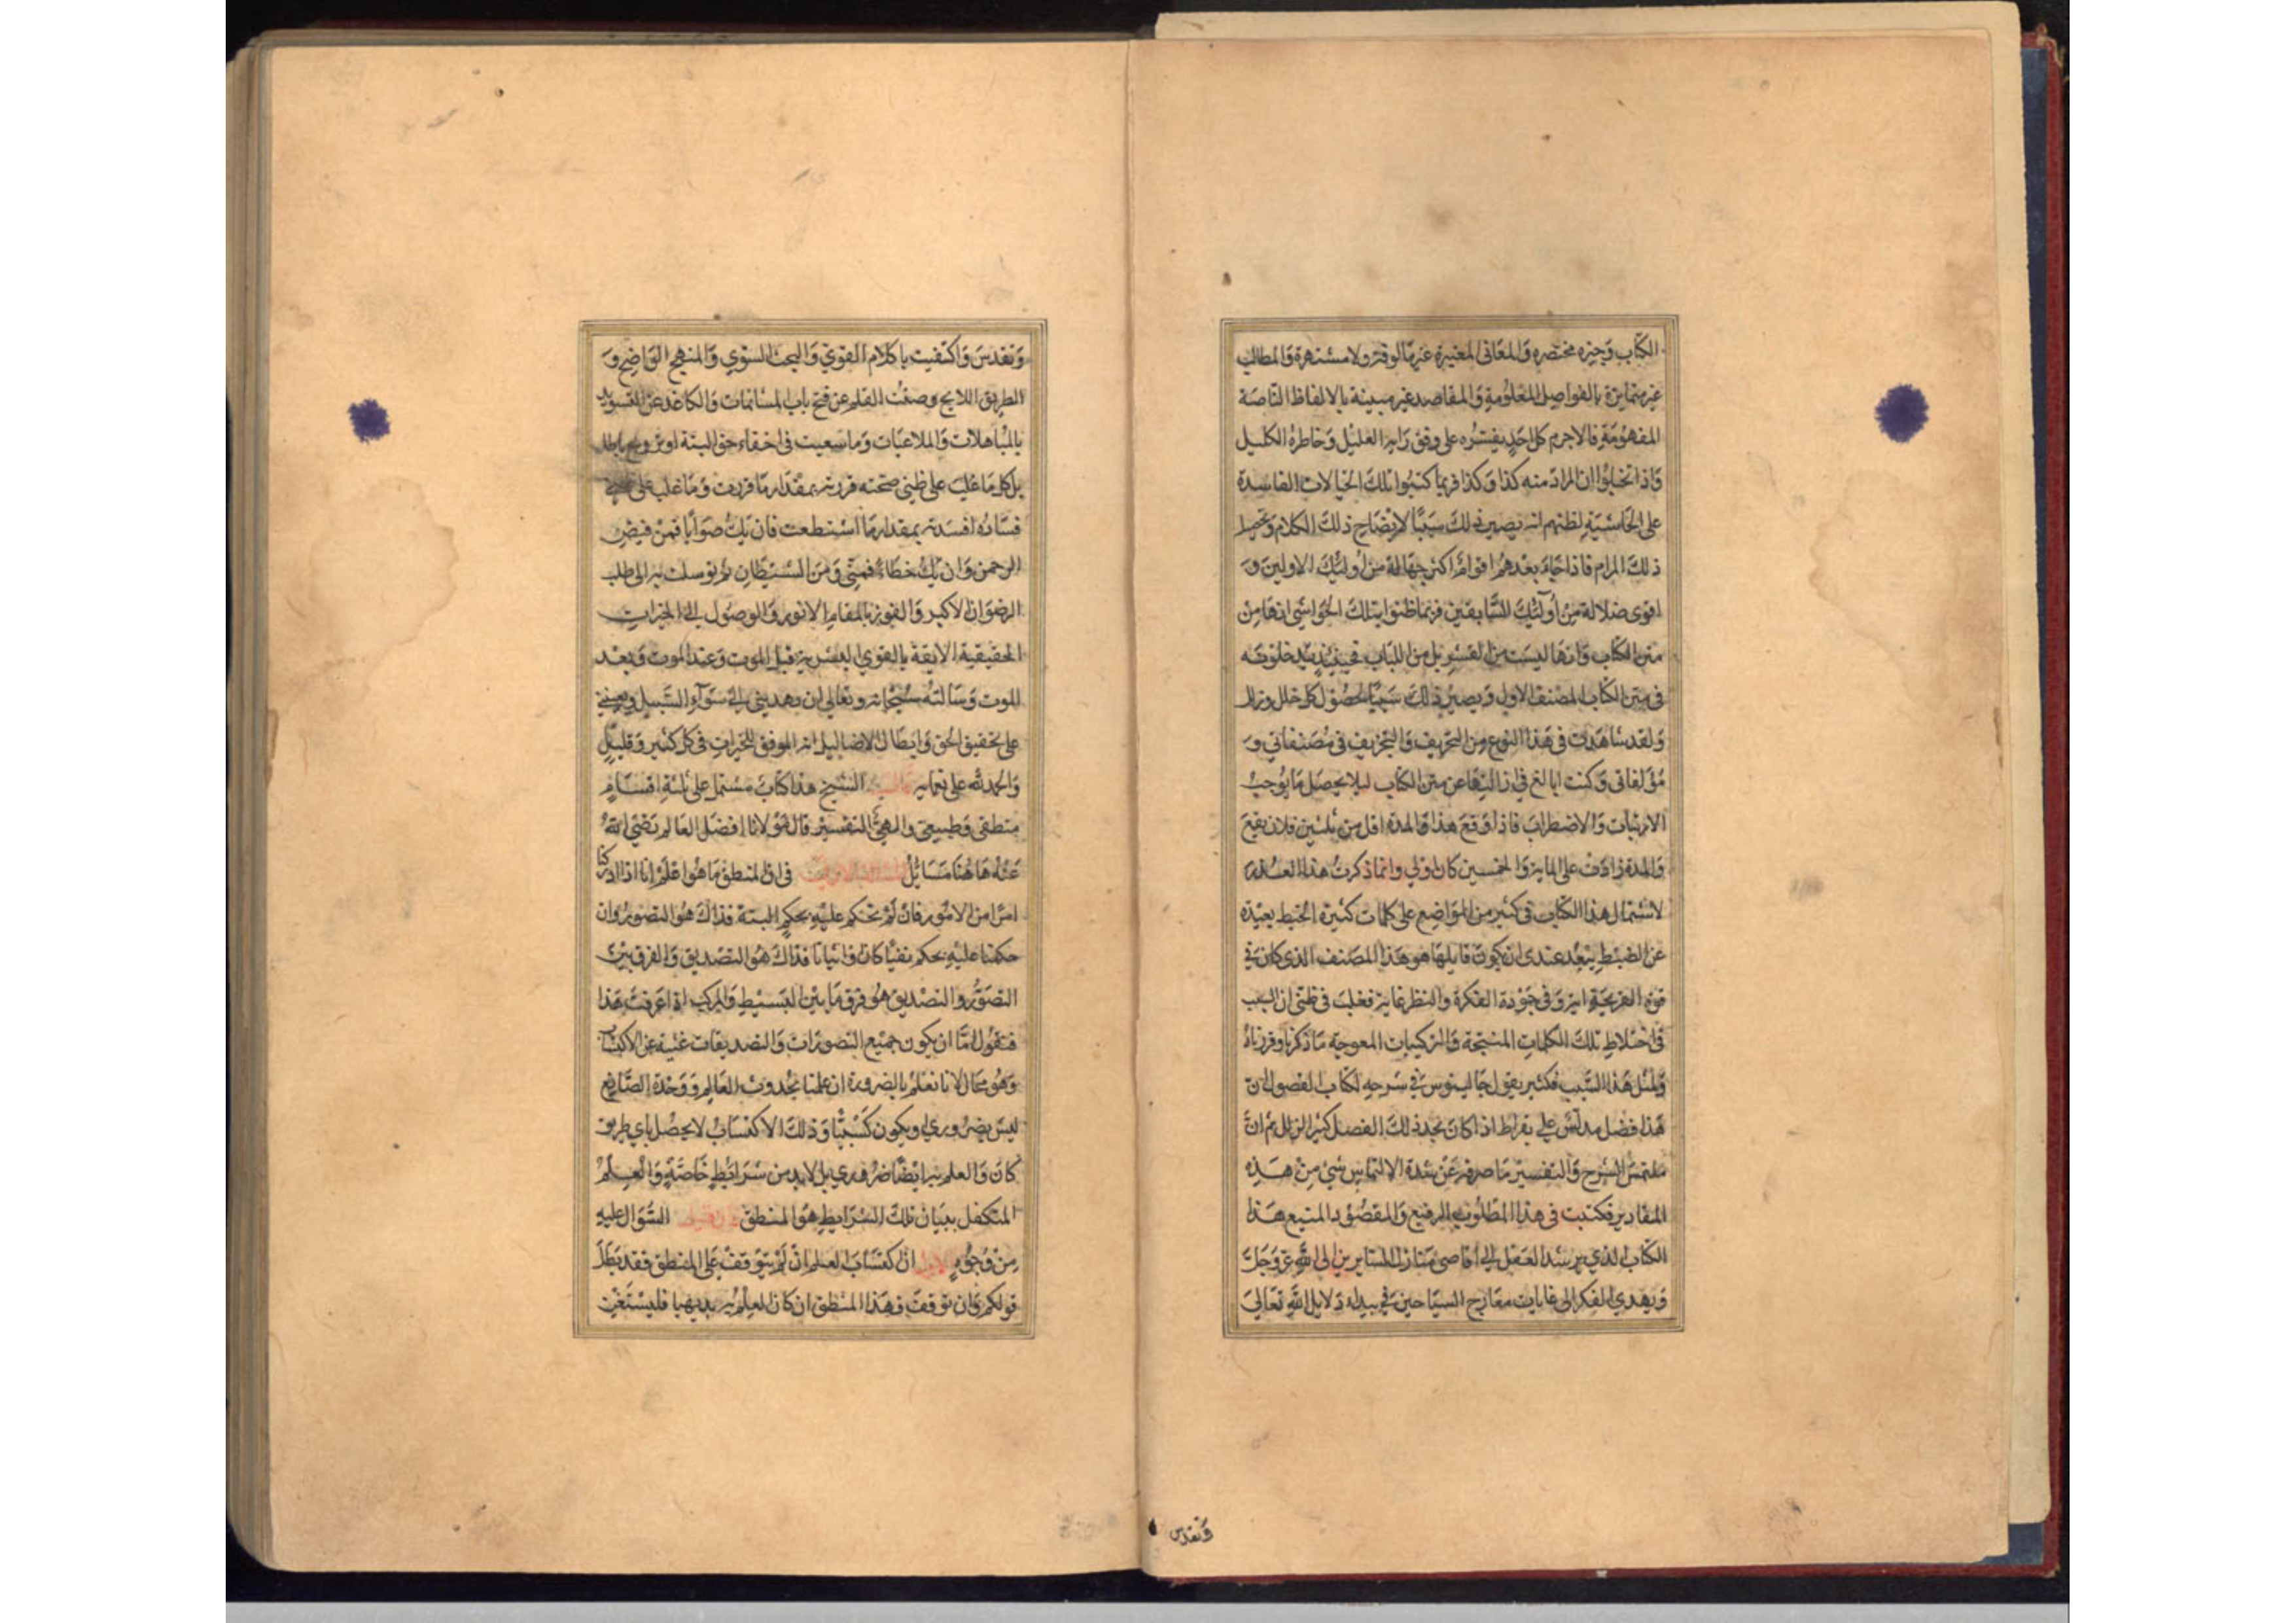 الكتاب وجيزه مختصره والمعاني المعتبرة غير مالوفة ولا مشتهرة والمطالب
غير متمايزة بالفواصل المعلومة والمقاصد غير مبينة بالالفاظ الناصة
المفهومة فالاجرم كل احد يفسره على وفق رايه العليل وخاطره الكليل
واذا تخيلوا ان المراد منه كذا وكذا فربما كتبوا تلك الخيالات الفاسدة
على الحاشية لظنهم انه يصير ذلك سببا لايضاح ذلك الكلام وتحصيل
ذلك المرام فاذا جاء بعدهم اقوام اكثر جهالة من اولئك الاولين و
اقوى ضلالة من اولئك السابقين فربما ظنوا بتلك الحواشي انها من
متن الكتاب وانها ليست من القشر بل من اللباب فحينئذ يدخلونه
في متن الكتاب المصنف الاول ويصير ذلك سببا لحصول كل خلل وزلل
ولقد شاهدت في هذا النوع من التحريف والتخريف في مصنفاتي و
مؤلفاتي وكنت ابالغ في ازالتها عن متن الكتاب ليلا يحصل ما يوجب
الارتياب والاضطراب فاذا وقع هذا والمدة اقل من ثلثين فلان يقع
والمدة زادت على الماية والخمسين كان اولى وانما ذكرت هذا العذر
لاشتمال هذا الكتاب في كثير من المواضع على كلمات كثيرة الخبط بعيدة
عن الضبط يبعد عندي ان يكون قايلها هو هذا المصنف الذي كان في
قوة القريحة اية وفي جودة الفكرة والنظر غاية فغلب في ظني ان السبب
في اختلاط تلك الكلمات المشبجة والتركيبات المعوجة ما ذكرناه وقررناه
ولمثل هذا السبب فكثير يقول جالينوس في شرحه لكتاب الفصول ان
هذا فصل مدلس على بقراط اذا كان يجد ذلك الفصل كثير الزلل ثم ان
ملتمس الشرح والتفسير ما صرفه عن شدة الالتماس شيء من هذه
المقادير فكتبت في هذا المطلوب الرفيع والمقصود المنيع هذا
الكتاب الذي يرشد العقل الى اقاصي منازل السايرين الى الله عز وجل
ويهدي الفكر الى غايات معارج السياحين في بيداء دلايل الله تعالى
وتقدس
وتقدس واكتفيت بالكلام القوي والبحث السوي والمنهج الواضح و
الطريق اللايح وصنت القلم عن فتح باب المشاتمات والكاغد عن التسويد
بالمباهلات والملاعبات وما سعيت في اخفاء حق البتة او ترويج باطل
بل كل ما غلب على ظني صحته قررته بمقدار ما قررت وما غلب على ظني
فساده افسدته بمقدار ما استطعت فان يك صوابا فمن فيض
الرحمن وان يك خطاء فمني ومن الشيطان ثم توسلت به الى طلب
الرضوان الاكبر والفوز بالمقام الانور والوصول الى الخيرات
الحقيقية الايقة بالقوي البشرية قبل الموت وعند الموت وبعد
الموت وسالته سبحانه وتعالى ان يهديني الى سواء السبيل ويعينني
على تحقيق الحق وابطال الاضاليل انه الموفق للخيرات في كل كثير وقليل
والحمد لله على نعمايه قال الشيخ هذا كتاب مشتمل على ثلثة اقسام
منطقي وطبيعي والهي التفسير قال مولانا افضل العالم رضي الله
عنه هاهنا مسايل المسئلة الاولى في ان المنطق ما هو اعلم انا اذا ادركنا
امرا من الامور فان لم نحكم عليه بحكم البتة فذاك هو التصور وان
حكمنا عليه بحكم نفيا كان او اثباتا فذاك هو التصديق والفرق بين
التصور والتصديق هو فرق ما بين البسيط والمركب اذا عرفت هذا
فنقول اما ان يكون جميع التصورات والتصديقات غنية عن الاكتساب
وهو محال لانا نعلم بالضرورة ان علمنا بحدوث العالم ووحدة الصانع
ليس بضروري او يكون كسبيا وذلك الاكتساب لا يحصل باي طريق
كان والعلم به ايضا ضروري بل لا بد من شرايط خاصة والعلم
المتكفل ببيان تلك الشرايط هو المنطق السوال عليه
من وجوه الاول ان اكتساب العلم ان لم يتوقف على المنطق فقد بطل
قولكم وان توقف فهذا المنطق ان كان العلم به بديهيا فليستغن